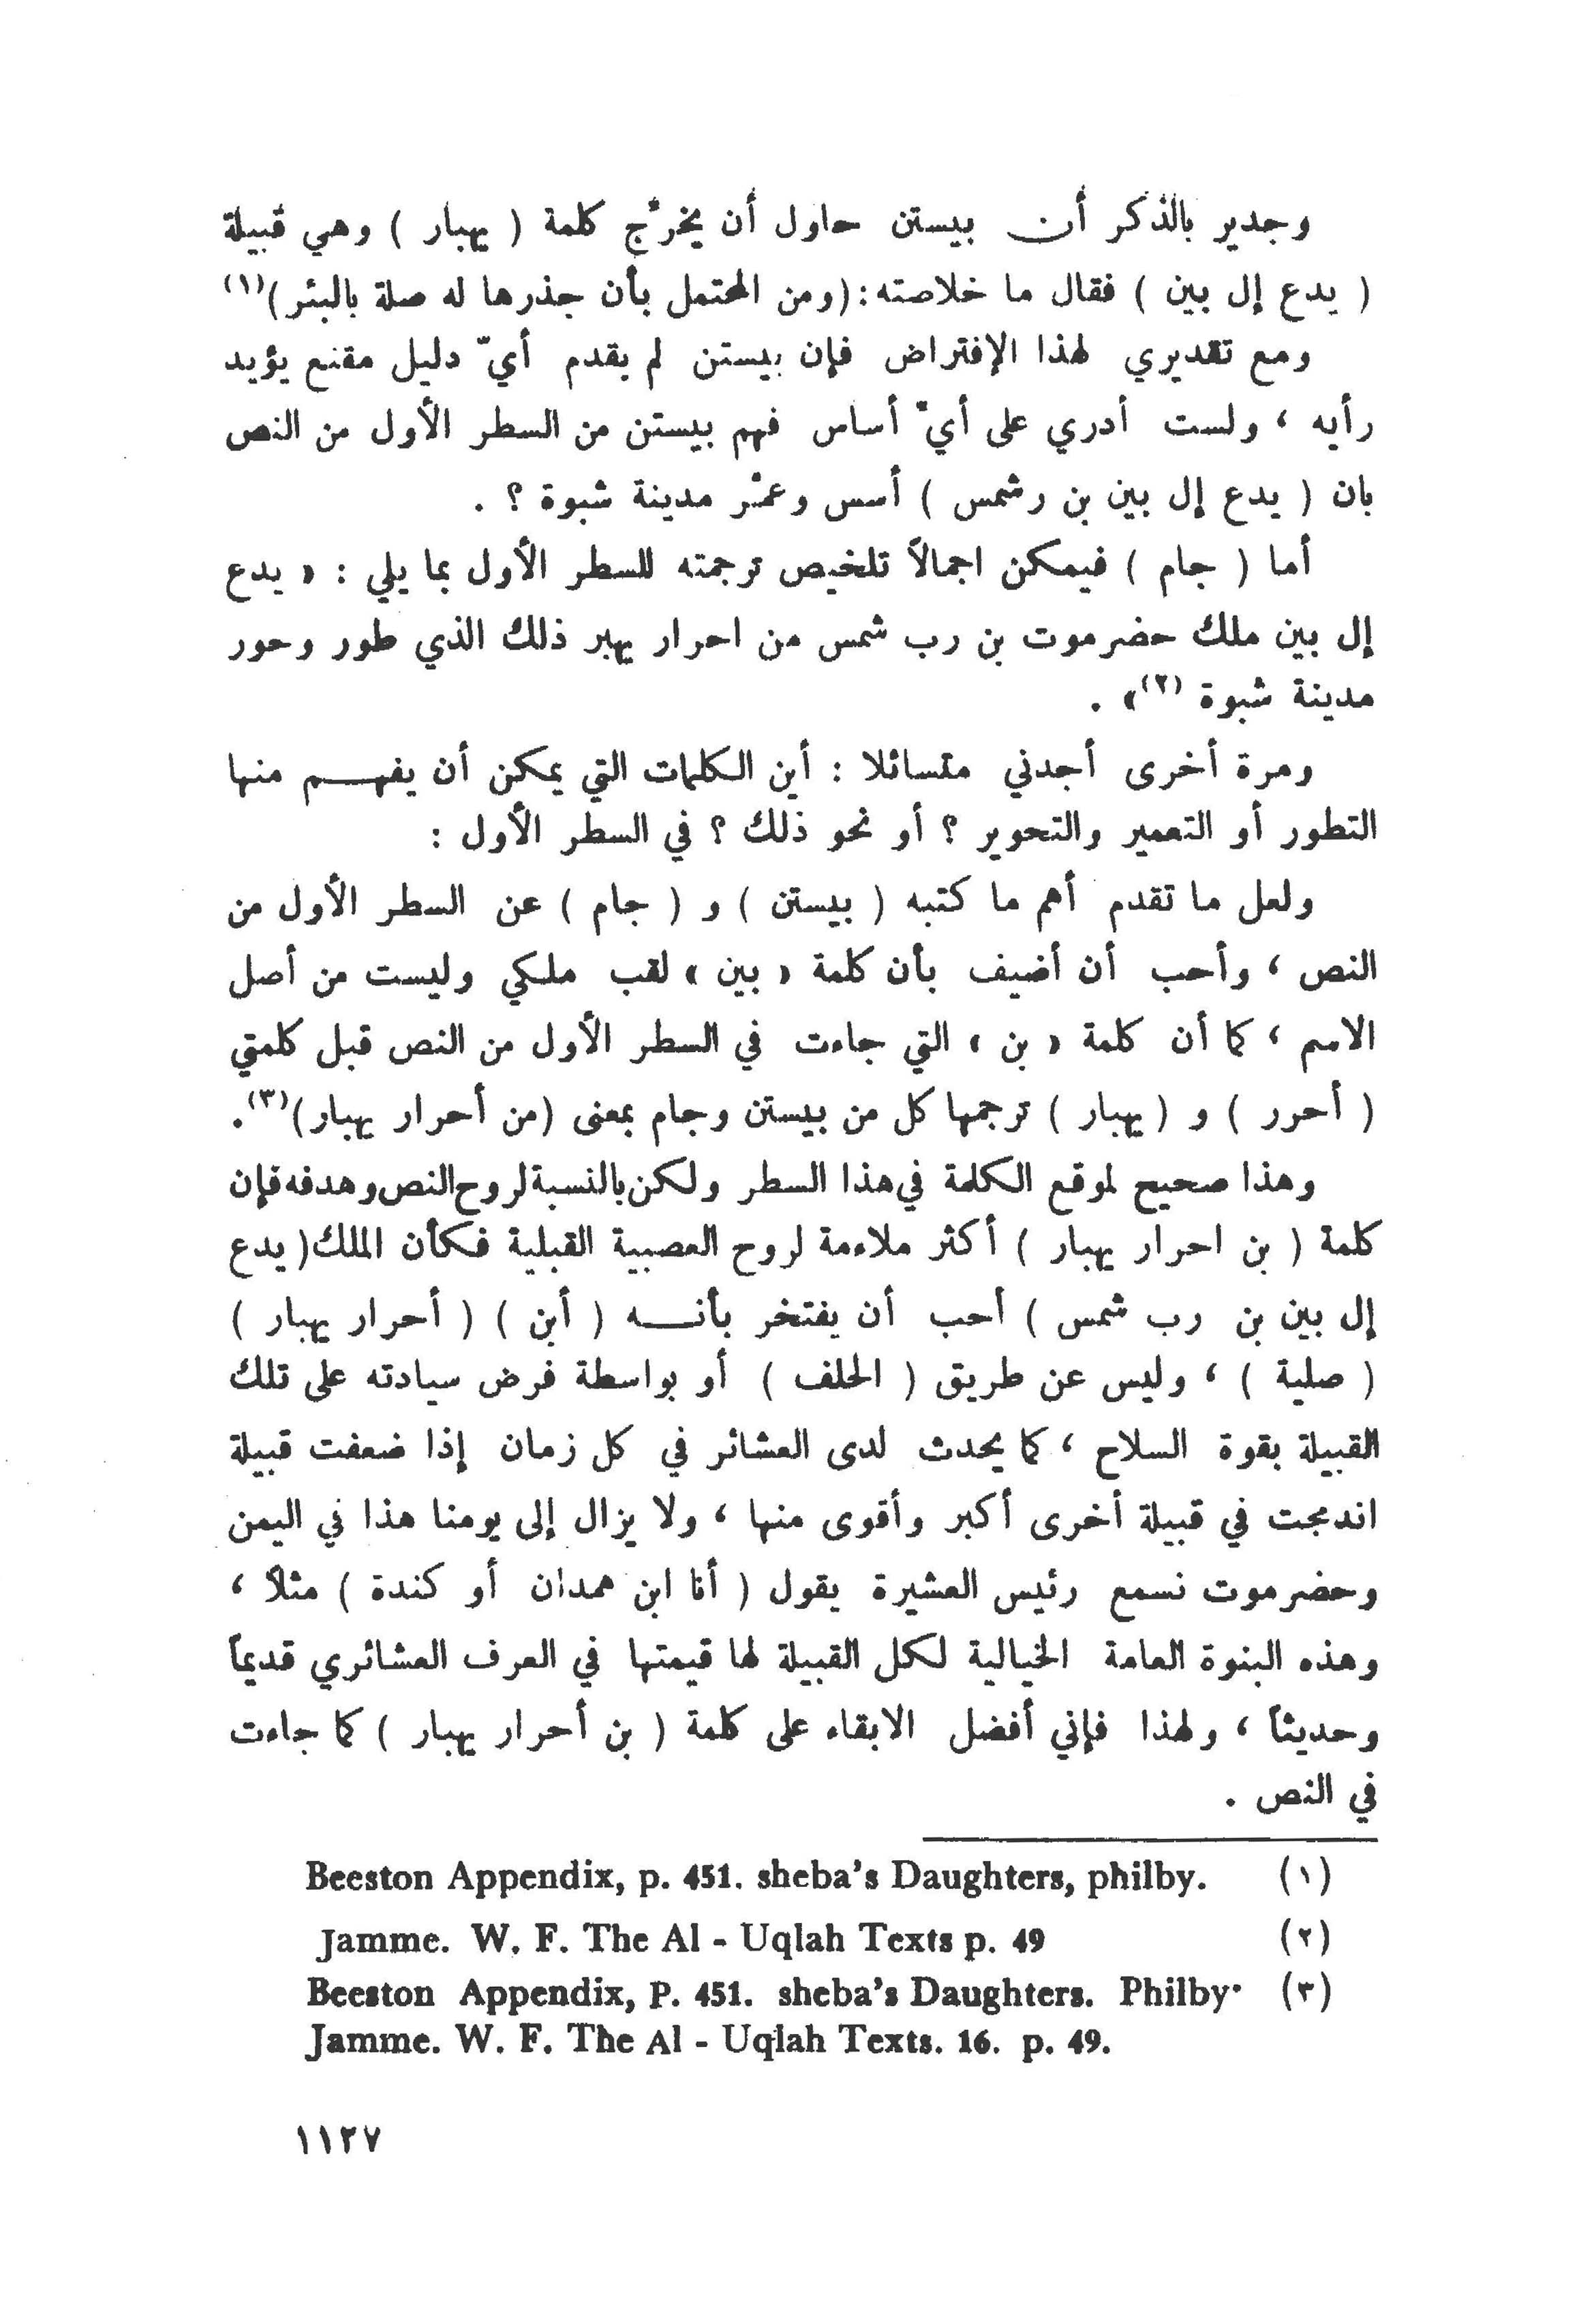 وجدير بالذكر أن بيستن حاول أن يخرّج كلمة ( يهبار ) وهي قبيلة
( يدع إل بين ) فقال ما خلاصته : (ومن المحتمل بأن جذرها له صلة بالبئر)(١)
ومع تقديري لهذا الإفتراض فإن بيستن لم يقدم أيّ دليل مقنع يؤيد
رأيه ، ولست أدري على أيّ أساس فهم بيستن من السطر الأول من النص
بان ( يدع إل بين بن رشمس ) أسس وعمّر مدينة شبوة ؟ .
أما ( جام ) فيمكن اجمالاً تلخيص ترجمته للسطر الأول بما يلي : « يدع
إل بين ملك حضرموت بن رب شمس من احرار يهبر ذلك الذي طور وحور
مدينة شبوة (٢)» .
ومرة أخرى أجدني متسائلا : أين الكلمات التي يمكن أن يفهم منها
التطور أو التعمير والتحوير ؟ أو نحو ذلك ؟ في السطر الأول :
ولعل ما تقدم أهم ما كتبه ( بيستن ) و ( جام ) عن السطر الأول من
النص ، وأحب أن أضيف بأن كلمة « بين » لقب ملكي وليست من أصل
الاسم ، كما أن كلمة « بن » التي جاءت في السطر الأول من النص قبل كلمتي
( أحرر ) و ( يهبار ) ترجمها كل من بيستن وجام بمعنى (من أحرار يهبار)(٣).
وهذا صحيح لموقع الكلمة في هذا السطر ولكن بالنسبة لروح النص وهدفه فإن
كلمة ( بن احرار يهبار ) أكثر ملاءمة لروح العصبية القبلية فكأن الملك ( يدع
إل بين بن رب شمس ) أحب أن يفتخر بأنه ( أبن ) ( أحرار يهبار )
( صلية ) ، وليس عن طريق ( الحلف ) أو بواسطة فرض سيادته على تلك
القبيلة بقوة السلاح ، كما يحدث لدى العشائر في كل زمان إذا ضعفت قبيلة
اندمجت في قبيلة أخرى أكبر وأقوى منها ، ولا يزال إلى يومنا هذا في اليمن
وحضرموت نسمع رئيس العشيرة يقول ( أنا ابن همدان أو كندة ) مثلاً ،
وهذه البنوة العامة الخيالية لكل القبيلة لها قيمتها في العرف العشائري قديماً
وحديثاً ، ولهذا فإني أفضل الابقاء على كلمة ( بن أحرار يهبار ) كما جاءت
في النص .
(١) Beeston Appendix, p. 451. sheba's Daughters, philby.
(٢) Jamme. W. F. The Al - Uqlah Texts p. 49
(٣) Beeston Appendix, P. 451. sheba's Daughters. Philby·
Jamme. W. F. The Al - Uqlah Texts. 16. p. 49.
١١٢٧